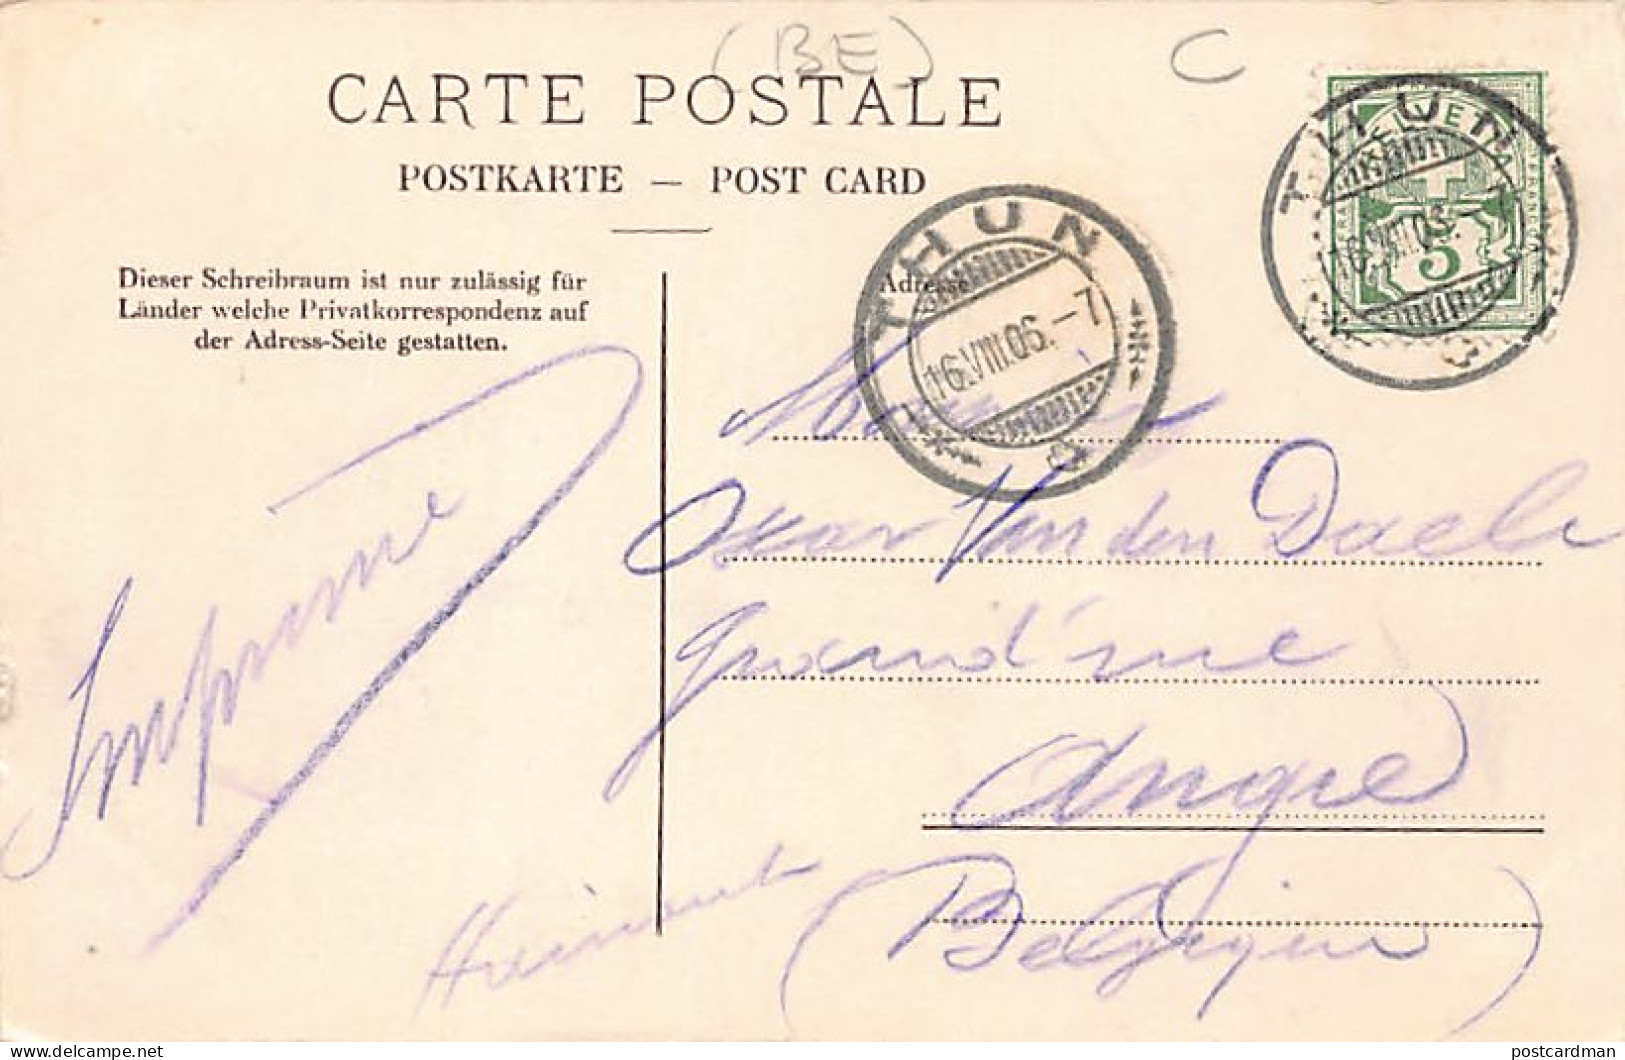 (BE)
C
CARTE POSTALE
POSTKARTE — POST CARD
Dieser Schreibraum ist nur zulässig für
Länder welche Privatkorrespondenz auf
der Adress-Seite gestatten.
Adresse
THUN
16.VIII.06.-7
THUN
16.VIII.06.-7
HELVETIA
5
FRANCO
Imprimé
Oscar Van den Daele
Grand'rue
Angre
Hainaut
(Belgique)
delcampe.net
postcardman